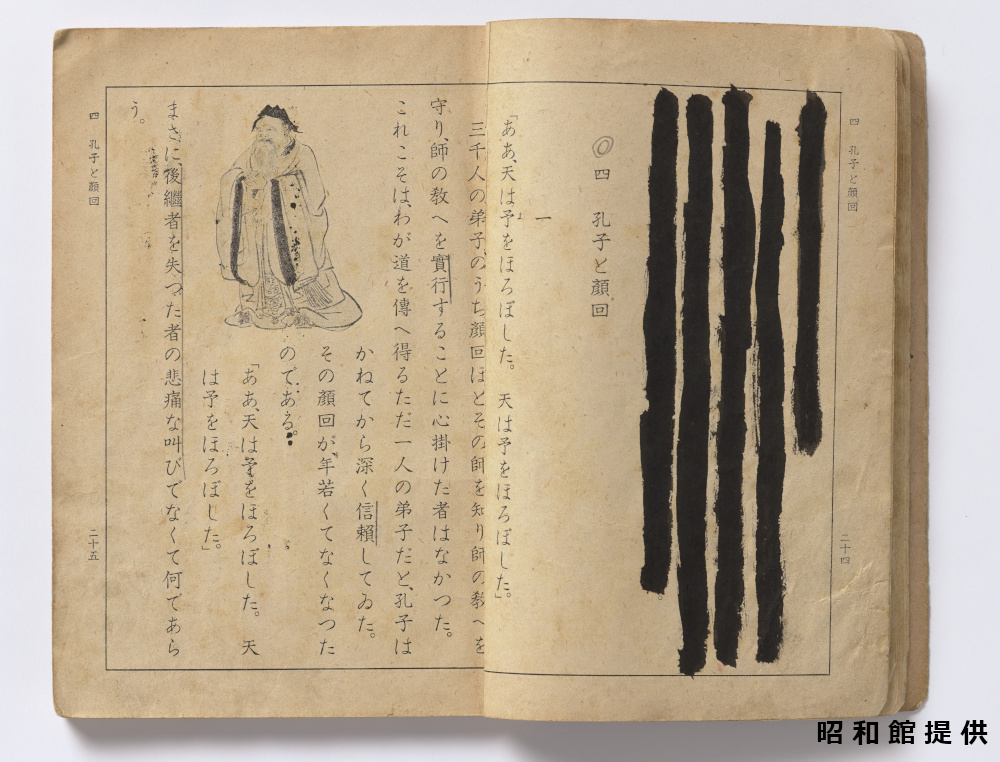 四 孔子と顔回
二十四
四 孔子と顔回
一
「ああ、天は予をほろぼした。 天は予をほろぼした。」
三千人の弟子のうち顔回ほどその師を知り師の教へを
守り、師の教へを實行することに心掛けた者はなかつた。
これこそは、わが道を傳へ得るただ一人の弟子だと、孔子は
かねてから深く信賴してゐた。
その顔回が、年若くてなくなつた
のである。
「ああ、天は予をほろぼした。 天
は予をほろぼした。」
まさに、後繼者を失つた者の悲痛な叫びでなくて何であら
う。
四 孔子と顔回
二十五
昭和館提供